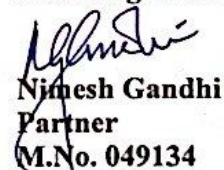 Nimesh Gandhi
Partner
M.No. 049134